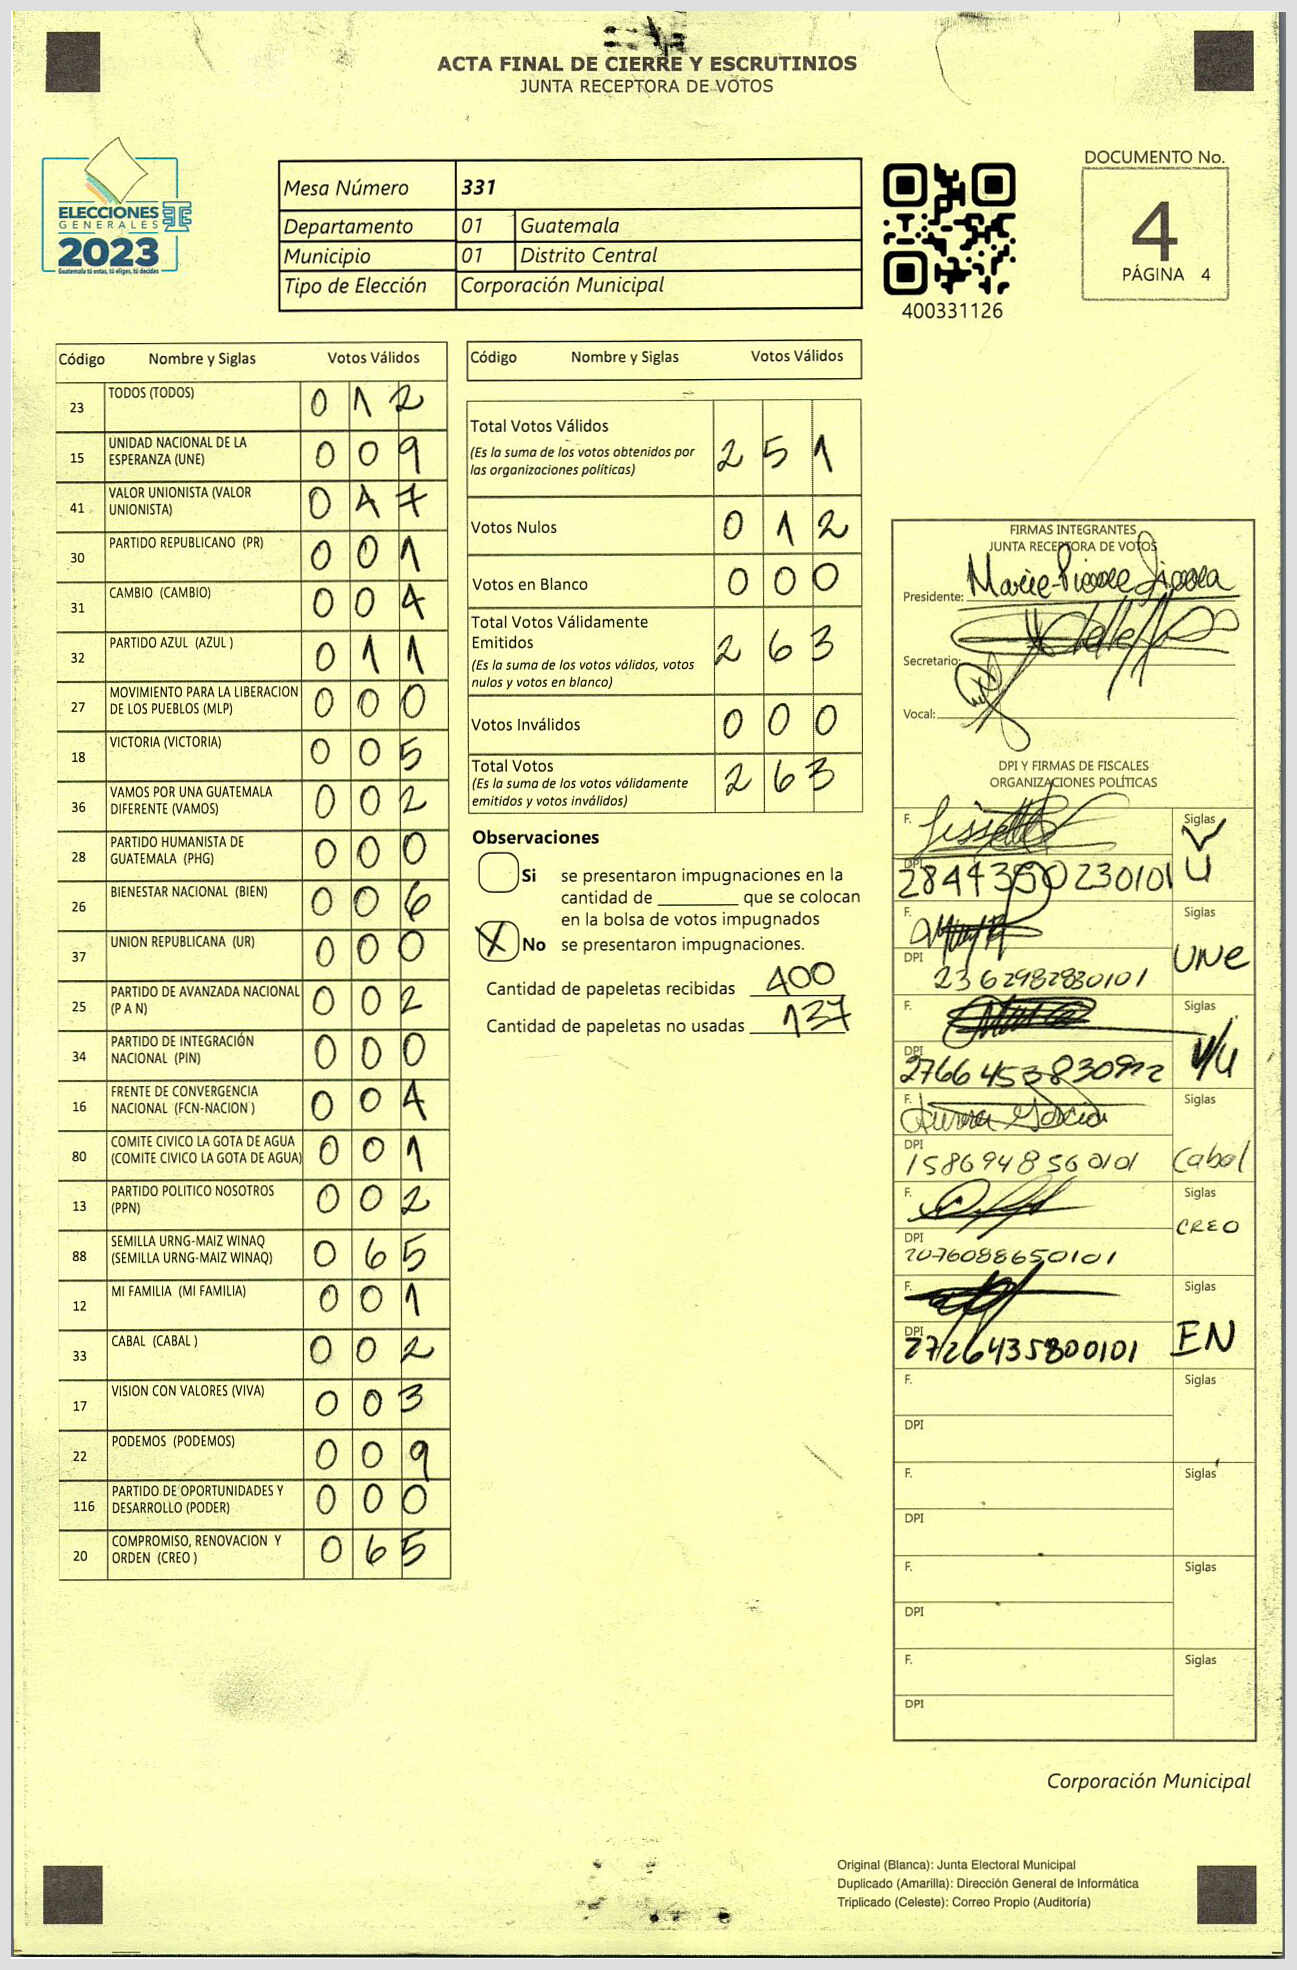 ACTA FINAL DE CIERRE Y ESCRUTINIOS
JUNTA RECEPTORA DE VOTOS
ELECCIONES
GENERALES
2023
Guatemala tú entas, tú eliges, tú decides
Mesa Número 331
Departamento 01 Guatemala
Municipio 01 Distrito Central
Tipo de Elección Corporación Municipal
400331126
DOCUMENTO No.
4
PÁGINA 4
Código Nombre y Siglas Votos Válidos
23 TODOS (TODOS) 0 1 2
15 UNIDAD NACIONAL DE LA
ESPERANZA (UNE) 0 0 9
41 VALOR UNIONISTA (VALOR
UNIONISTA) 0 4 7
30 PARTIDO REPUBLICANO (PR) 0 0 1
31 CAMBIO (CAMBIO) 0 0 4
32 PARTIDO AZUL (AZUL ) 0 1 1
27 MOVIMIENTO PARA LA LIBERACION
DE LOS PUEBLOS (MLP) 0 0 0
18 VICTORIA (VICTORIA) 0 0 5
36 VAMOS POR UNA GUATEMALA
DIFERENTE (VAMOS) 0 0 2
28 PARTIDO HUMANISTA DE
GUATEMALA (PHG) 0 0 0
26 BIENESTAR NACIONAL (BIEN) 0 0 6
37 UNION REPUBLICANA (UR) 0 0 0
25 PARTIDO DE AVANZADA NACIONAL
(P A N) 0 0 2
34 PARTIDO DE INTEGRACIÓN
NACIONAL (PIN) 0 0 0
16 FRENTE DE CONVERGENCIA
NACIONAL (FCN-NACION ) 0 0 4
80 COMITE CIVICO LA GOTA DE AGUA
(COMITE CIVICO LA GOTA DE AGUA) 0 0 1
13 PARTIDO POLITICO NOSOTROS
(PPN) 0 0 2
88 SEMILLA URNG-MAIZ WINAQ
(SEMILLA URNG-MAIZ WINAQ) 0 6 5
12 MI FAMILIA (MI FAMILIA) 0 0 1
33 CABAL (CABAL ) 0 0 2
17 VISION CON VALORES (VIVA) 0 0 3
22 PODEMOS (PODEMOS) 0 0 9
116 PARTIDO DE OPORTUNIDADES Y
DESARROLLO (PODER) 0 0 0
20 COMPROMISO, RENOVACION Y
ORDEN (CREO ) 0 6 5
Código Nombre y Siglas Votos Válidos
Total Votos Válidos
(Es la suma de los votos obtenidos por
las organizaciones políticas) 2 5 1
Votos Nulos 0 1 2
Votos en Blanco 0 0 0
Total Votos Válidamente
Emitidos
(Es la suma de los votos válidos, votos
nulos y votos en blanco) 2 6 3
Votos Inválidos 0 0 0
Total Votos
(Es la suma de los votos válidamente
emitidos y votos inválidos) 2 6 3
Observaciones
Si se presentaron impugnaciones en la
cantidad de ________ que se colocan
en la bolsa de votos impugnados
X No se presentaron impugnaciones.
Cantidad de papeletas recibidas 400
Cantidad de papeletas no usadas 137
FIRMAS INTEGRANTES
JUNTA RECEPTORA DE VOTOS
Presidente:
Secretario:
Vocal:
DPI Y FIRMAS DE FISCALES
ORGANIZACIONES POLÍTICAS
F. Siglas V
DPI 2844350230101 U
F. Siglas
DPI 2362982830101 UNE
F. Siglas
DPI 2766453830922 V/U
F. Siglas
DPI 1586948560101 Cabal
F. Siglas
DPI 2076088650101 CREO
F. Siglas
DPI 2726435800101 EN
F. Siglas
DPI
F. Siglas
DPI
F. Siglas
DPI
F. Siglas
DPI
Corporación Municipal
Original (Blanca): Junta Electoral Municipal
Duplicado (Amarilla): Dirección General de Informática
Triplicado (Celeste): Correo Propio (Auditoría)